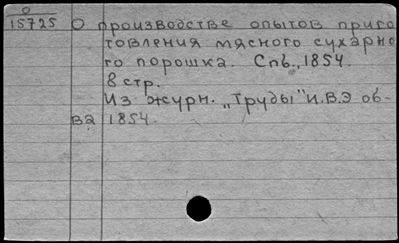 О
15725 О производстве опытов приго-
товления мясного сухарно-
го порошка. Спб., 1854.
8 стр.
Из журн. „Труды" И.В.Э об-
ва 1854.